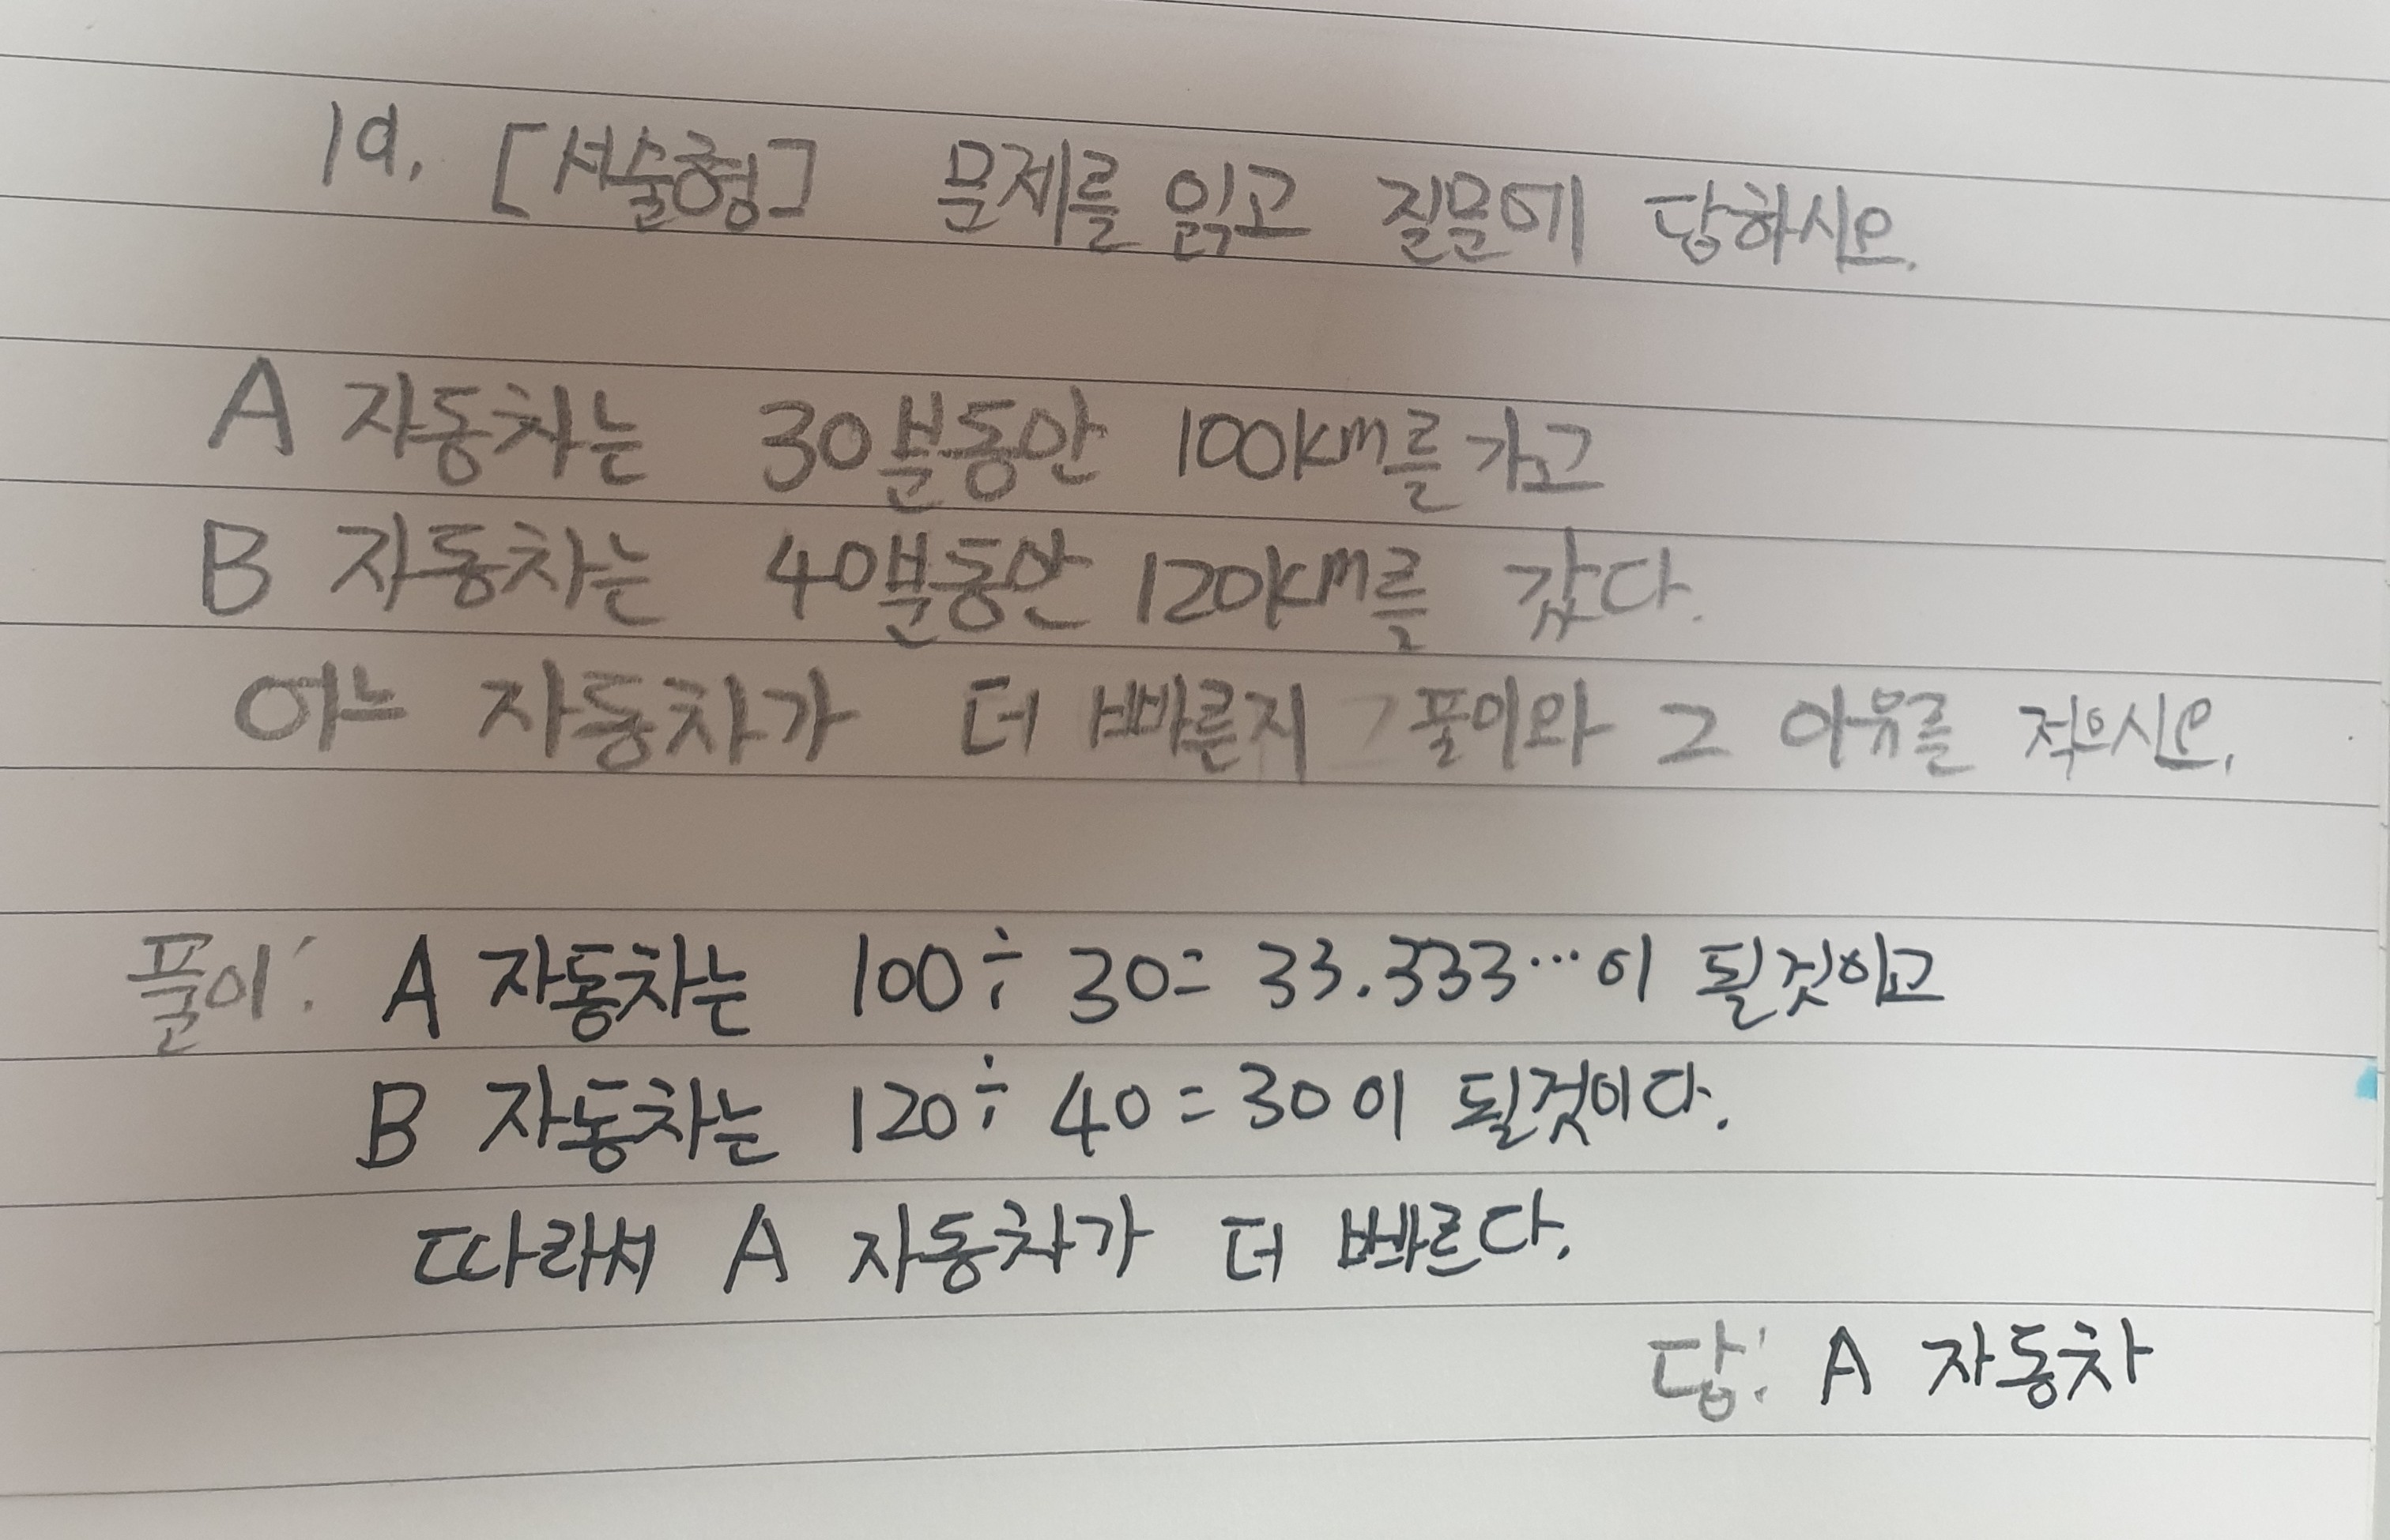 19. [서술형] 문제를 읽고 질문에 답하시오.
A 자동차는 30분동안 100km를 가고
B 자동차는 40분동안 120km를 갔다.
어느 자동차가 더 빠른지 풀이와 그 이유를 적으시오.
풀이: A 자동차는 100÷30=33.333…이 될것이고
B 자동차는 120÷40=30이 될것이다.
따라서 A 자동차가 더 빠르다.
답: A 자동차